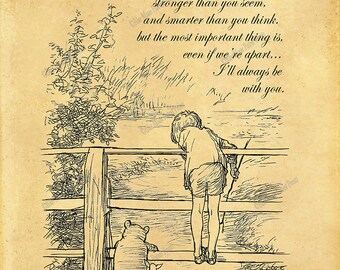 stronger than you seem,
and smarter than you think.
but the most important thing is,
even if we're apart...
I'll always be
with you.